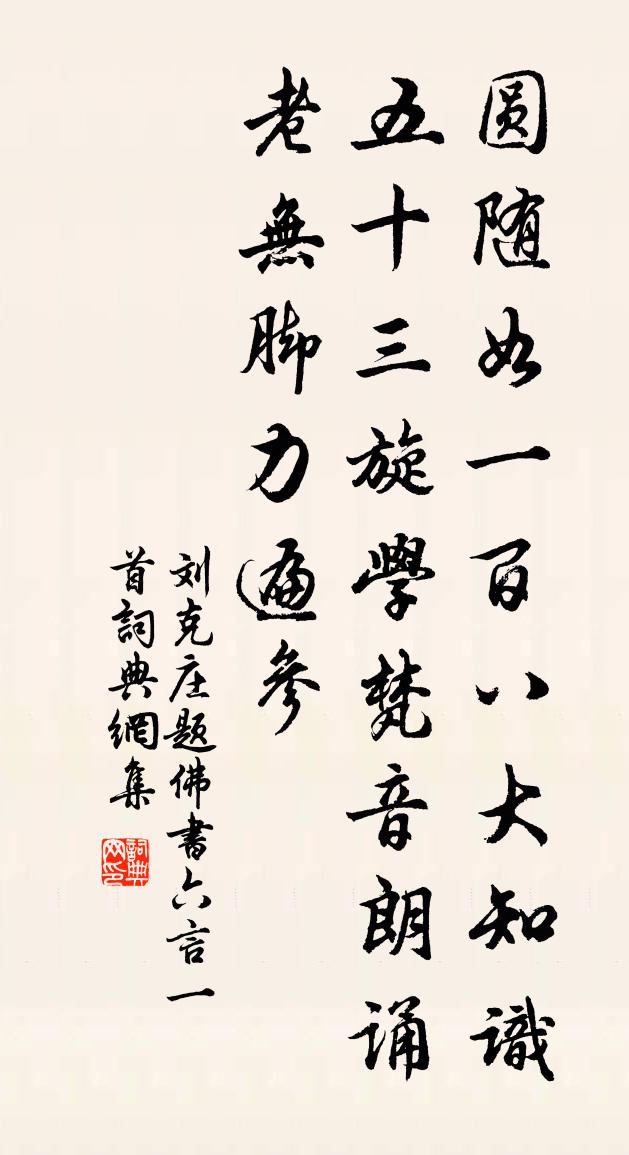 圆随如一百八大知識
五十三旋學梵音朗诵
老無脚力遍參
刘克庄题佛書六言一
首詞典網集
詞典网印